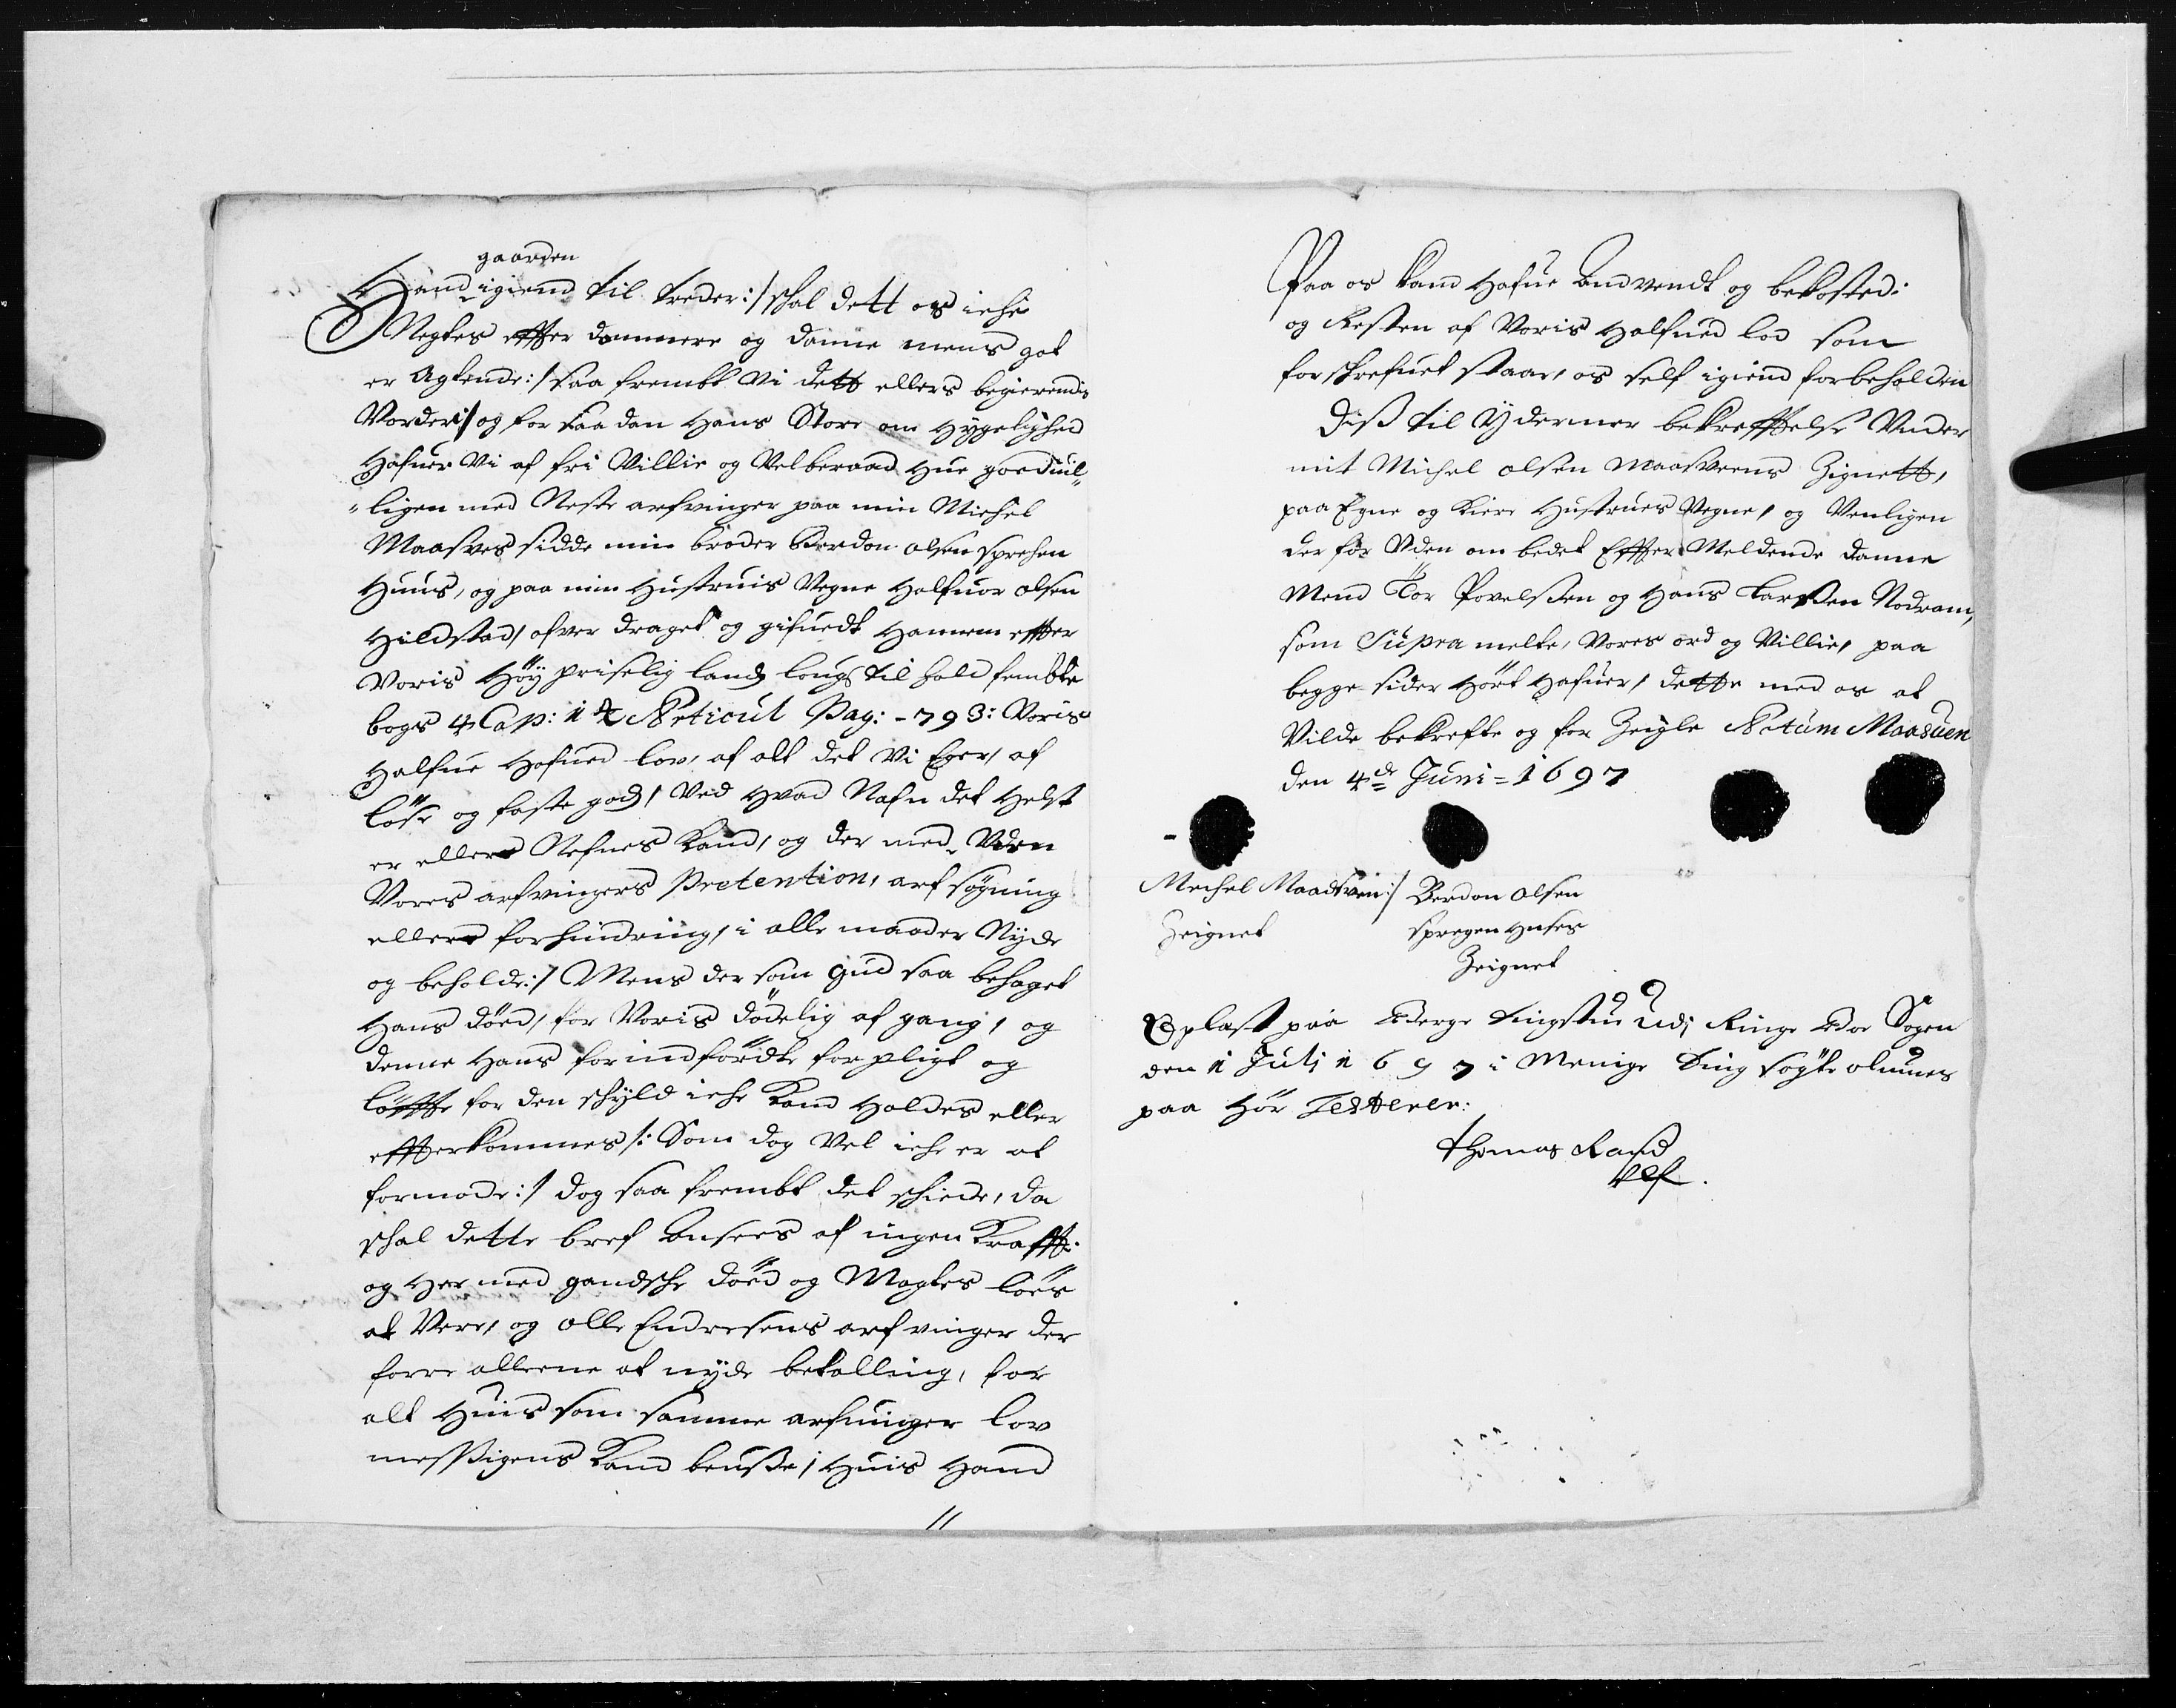 gaarden
Hand igiend til treder :/ schal dett os iche
Negtes effter dommere og danne mens got
er Agtende :/ saa frembt Vi dett ellers begierendis
Vorder :/ og for saadan Hans Store om Hygelighed
Hafuer Vi af fri Villie og Velberaad Hue goeduil„
„ligen med Neste arfvinger paa min Michel
Maasves sidde min broder Berdon olsen sprehen
Huus, og paa min Hustruis Vegne Halfuor olsen
Hildstad, ofver draget og gifuedt Hannem effter
Voris Höÿ priselig landz lougs til hold fembte
bogs 4 Cap: 1 Articul Pag: - 793: Voris
Halfue Hofued lov, af alt det Vi Eger, af
löse og faste godz, Ved Hvad Nafn det Helst
er ellers Nefnes kand, og der med Uden
Vores arfvingers Pretention, arf søgning
ellers forhindring, i alle maader Nÿde
og beholde :/ Mens der som Gud saa behaget
Hans döed, for Voris dödelig af gang, og
denne Hans for indfördte forpligt og
löffte for den schÿld iche kand Holdes eller
effterkommes /: Som dog Vel iche er at
formode :/ dog saa frembt det schiede, da
schal dette bref Ansees af ingen Krafft:
og Her med gandsche döed og Magtes löes
at Vere, og Olle Endresens arfvinger der
forre allerne at nÿde betalling, for
alt Huis som samme arfuinger lov
messigens kand beuisse, Huis Hand
//
Paa os kand Hafue Andvendt og bekosted:
og Resten af Voris Halfued lod som
forschrefuet staar, os self igiend forbeholden
Diss til Ÿdermer bekrefftelse Under
mit Michel olsen Maasveens Zignett,
paa Egne og kiere Hustrues Vegne, og Venligen
der for Uden om bedet Effter Meldende danne
Mend Tor Povelssen og Hans Larssen Nodram,
som Supra melte, Vores ord og Villie, paa
begge sider Hört Hafuer, dette med os at
Vilde bekrefte og for Zeigle Actum Maasuen
den 4de Juni = 1697
Michel Maadsvein :/ Berdon Olsen
Zeignet spregen Huses
Zeignet
Oplast paa Berge tingstue Udj Ringe Boe Sogen
den 1 Julj 1697 i Menige ting søgte olmues
paa Hör Testerer:
Thomas Rasd